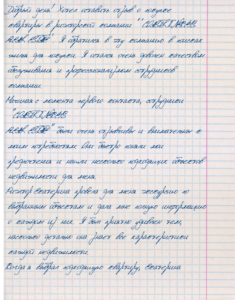 Добрый день! Хочу оставить отзыв о покупке
квартиры в риэлторской компании
Я обратился в эту компанию в поисках
жилья для покупки. Я остался очень доволен качеством
обслуживания и профессионализмом сотрудников
компании.
Начиная с момента первого контакта, сотрудники
были очень отзывчивы и внимательны к
моим потребностям. Они быстро поняли мои
предпочтения и нашли несколько подходящих объектов
недвижимости для меня.
Екатерина провела для меня экскурсию по
выбранным объектам и дала мне полную информацию
о каждом из них. Я был приятно удивлен тем,
насколько детально она знает все характеристики
каждой недвижимости.
Когда я выбрал подходящую квартиру, Екатерина